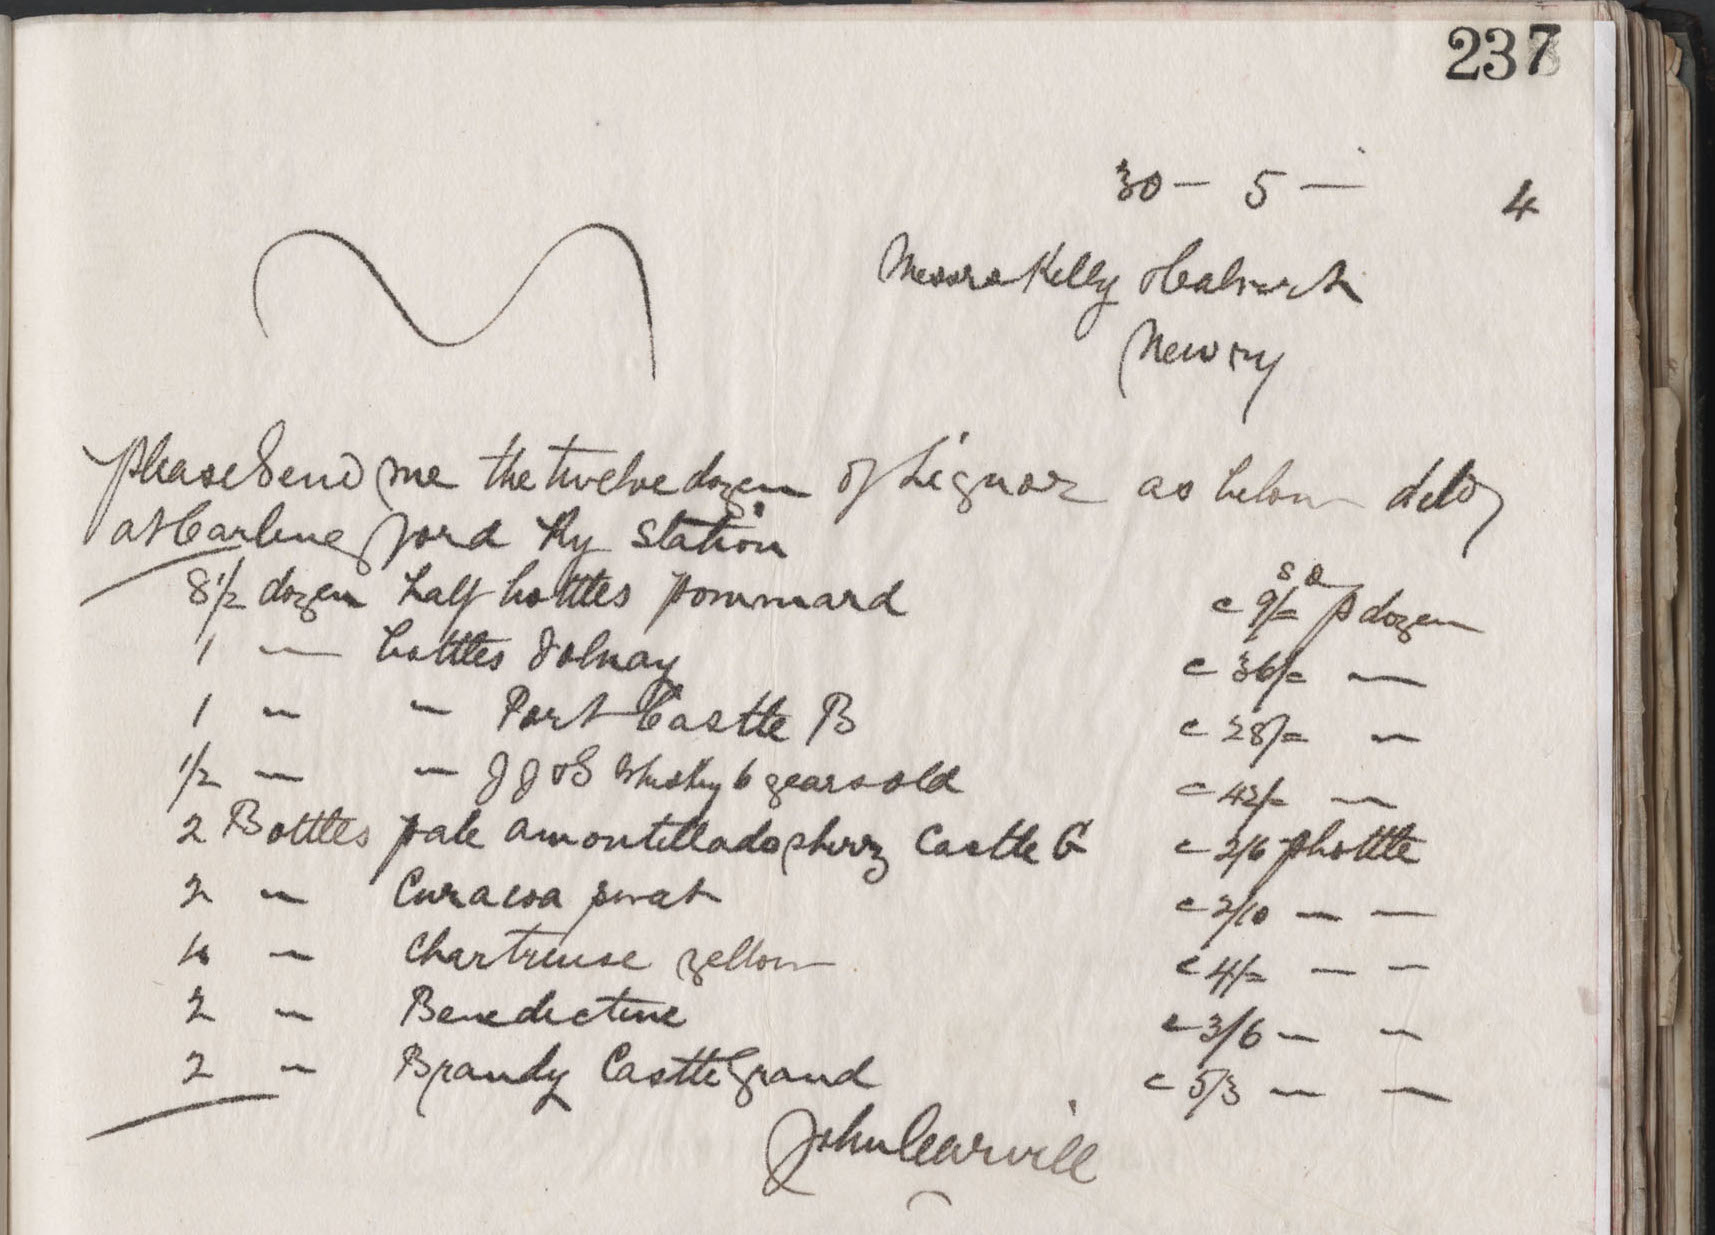 237
30 - 5 - 4
Messrs Kelly &
Newry
please Send me the twelve dozen of Liquor as below
at Carlingford Ry Station
8 1/2 dozen half bottles pommard c 9/= p dozen
s d
1 " bottles Volnay c 36/= "
1 " " Port Castle B c 28/= "
1/2 " " J J & S Whisky 6 years old c 42/= "
2 Bottles pale amontillado sherry Castle G c 2/6 p bottle
2 " Curacoa c 2/10 " "
4 " Chartreuse yellow c 4/= " "
2 " Benedictine c 3/6 " "
2 " Brandy Castle Grand c 5/3 " "
John Carvill